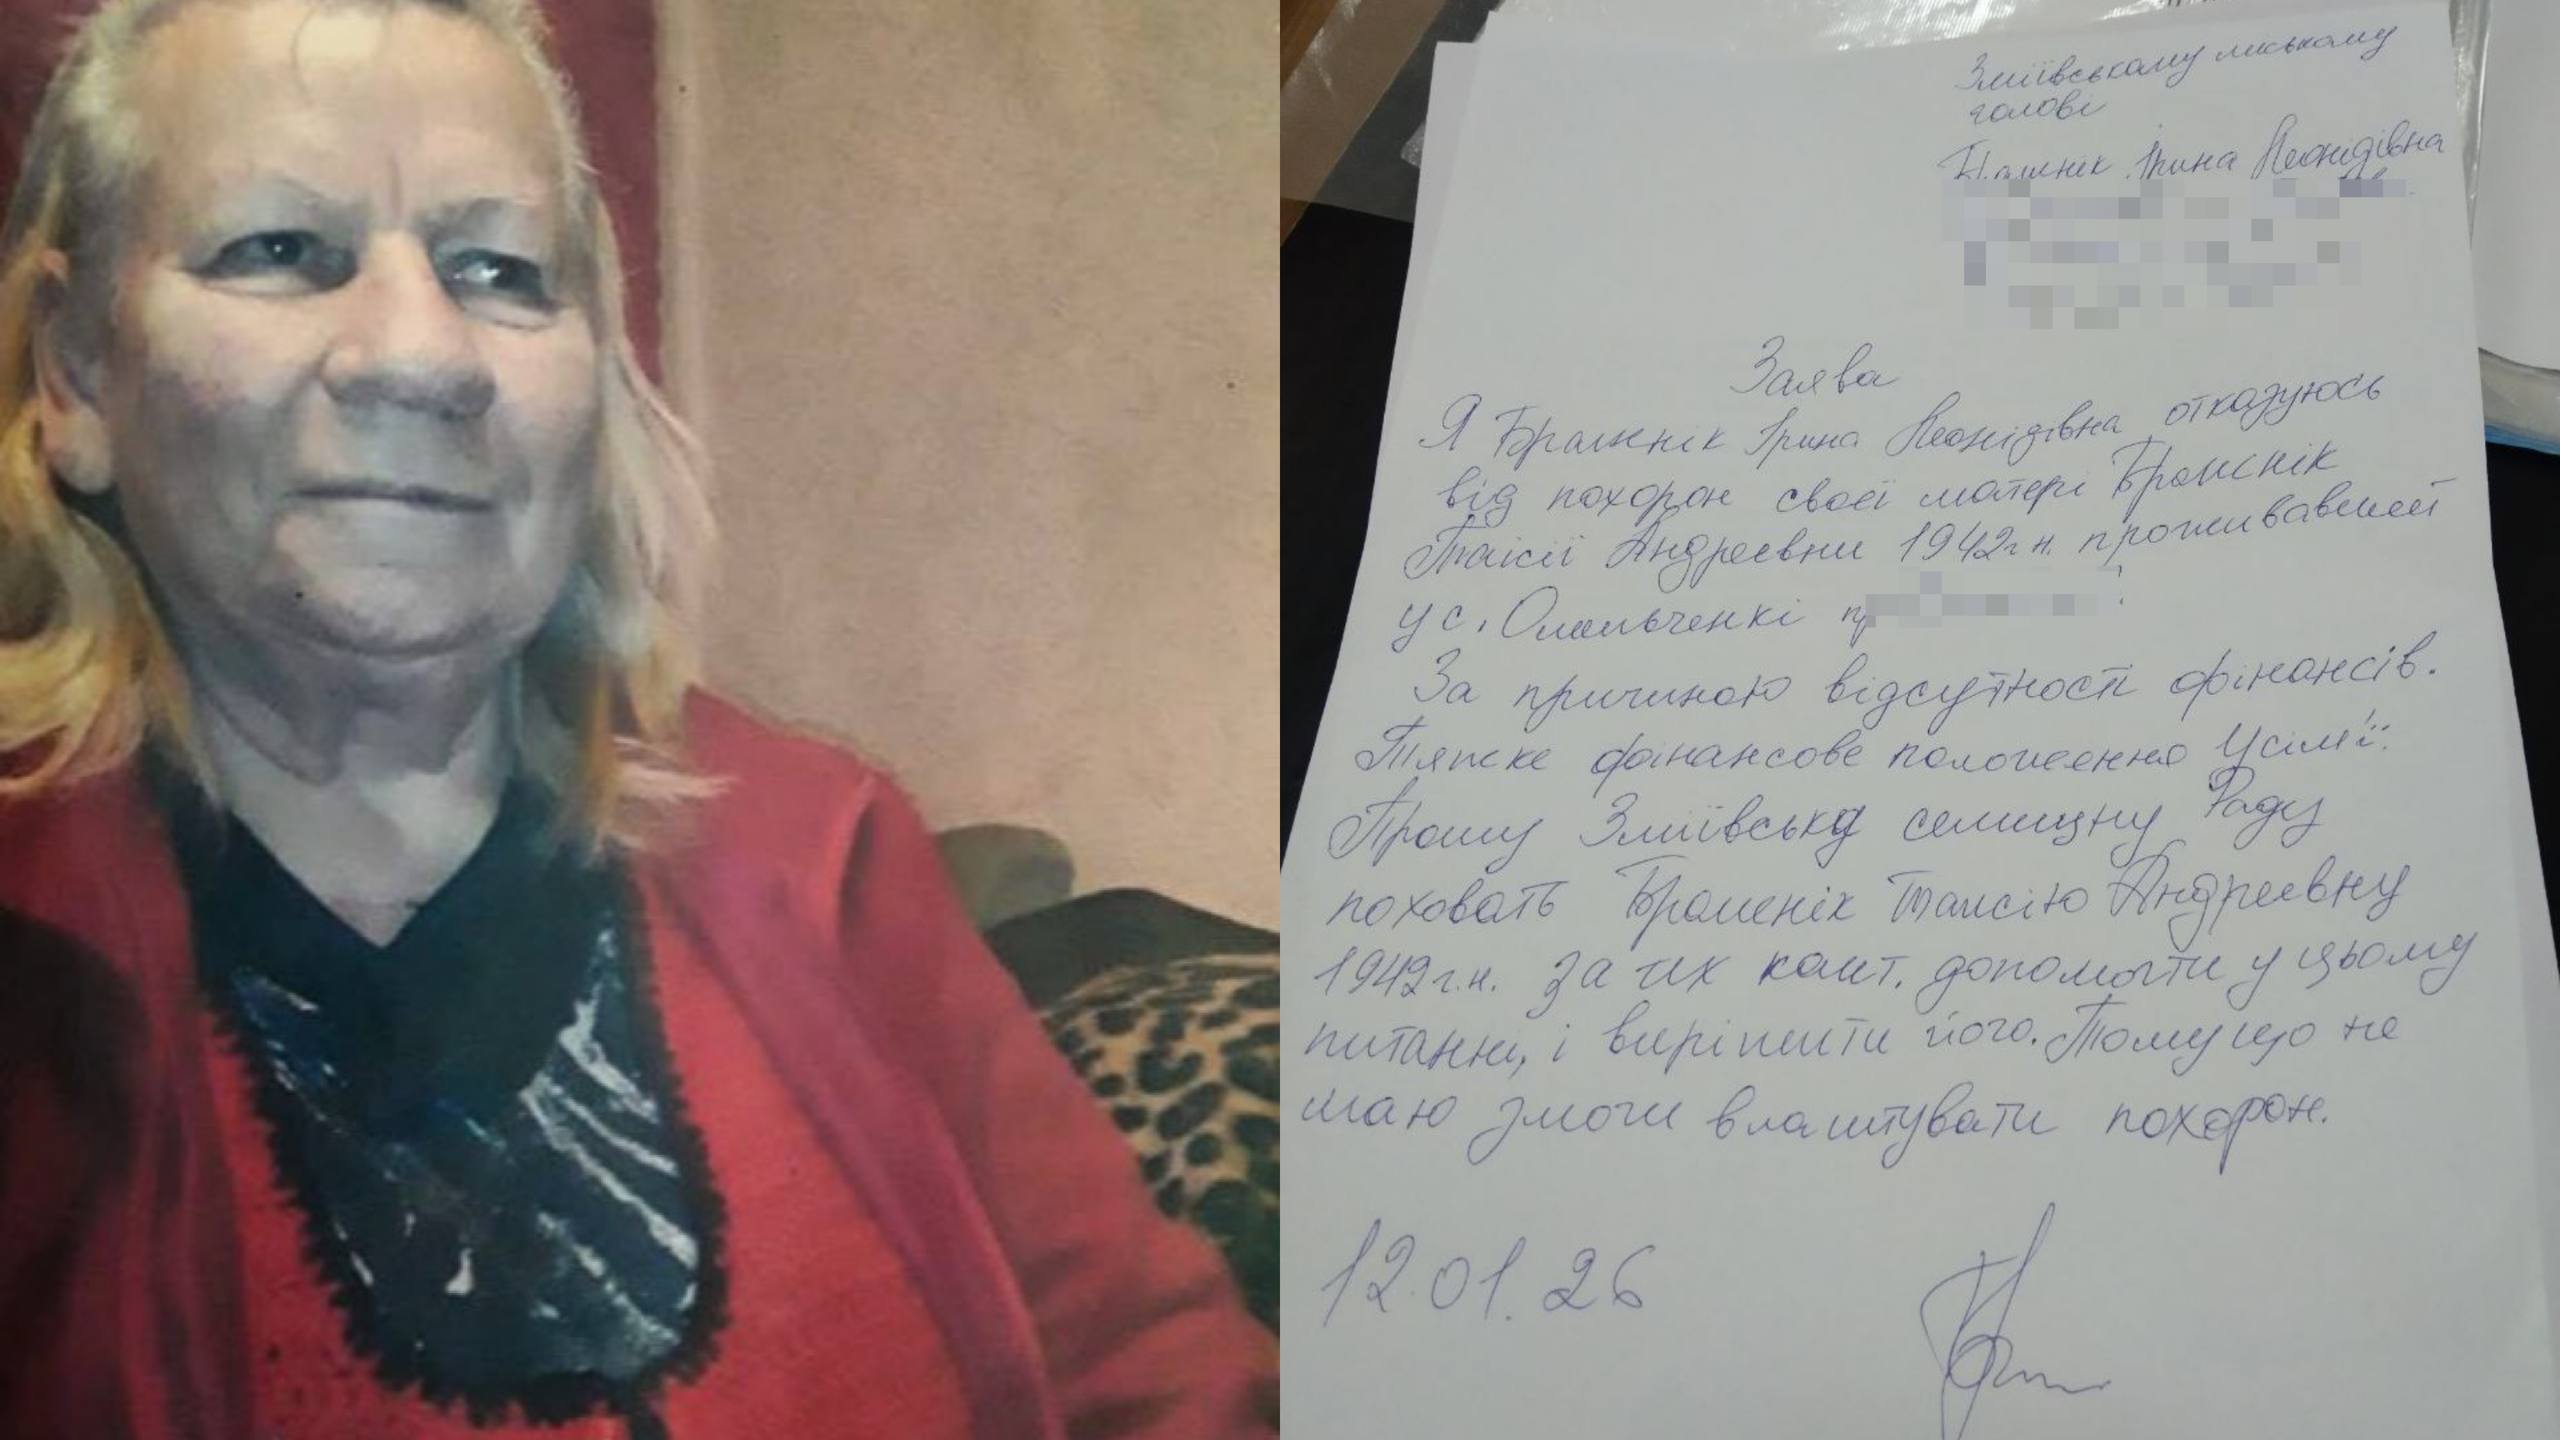 Зміївському міському
голові
Бражнік Ірина Леонідівна
Заява
Я Бражнік Ірина Леонідівна отказуюсь
від похорон своєї матері Бражнік
Таісії Андреевни 1942г.н. проживавшей
у с. Омельченкі пр
За причиною відсутності фінансів.
Тяжке фінансове положеення Усімї.
Прошу Зміївську селищну Раду
поховать Бражнік Таисію Андреевну
1942г.н. за их кошт. допомогти у цьому
питанні, і вирішити його. Тому що не
маю змоги влаштувати похорон.
12.01.26